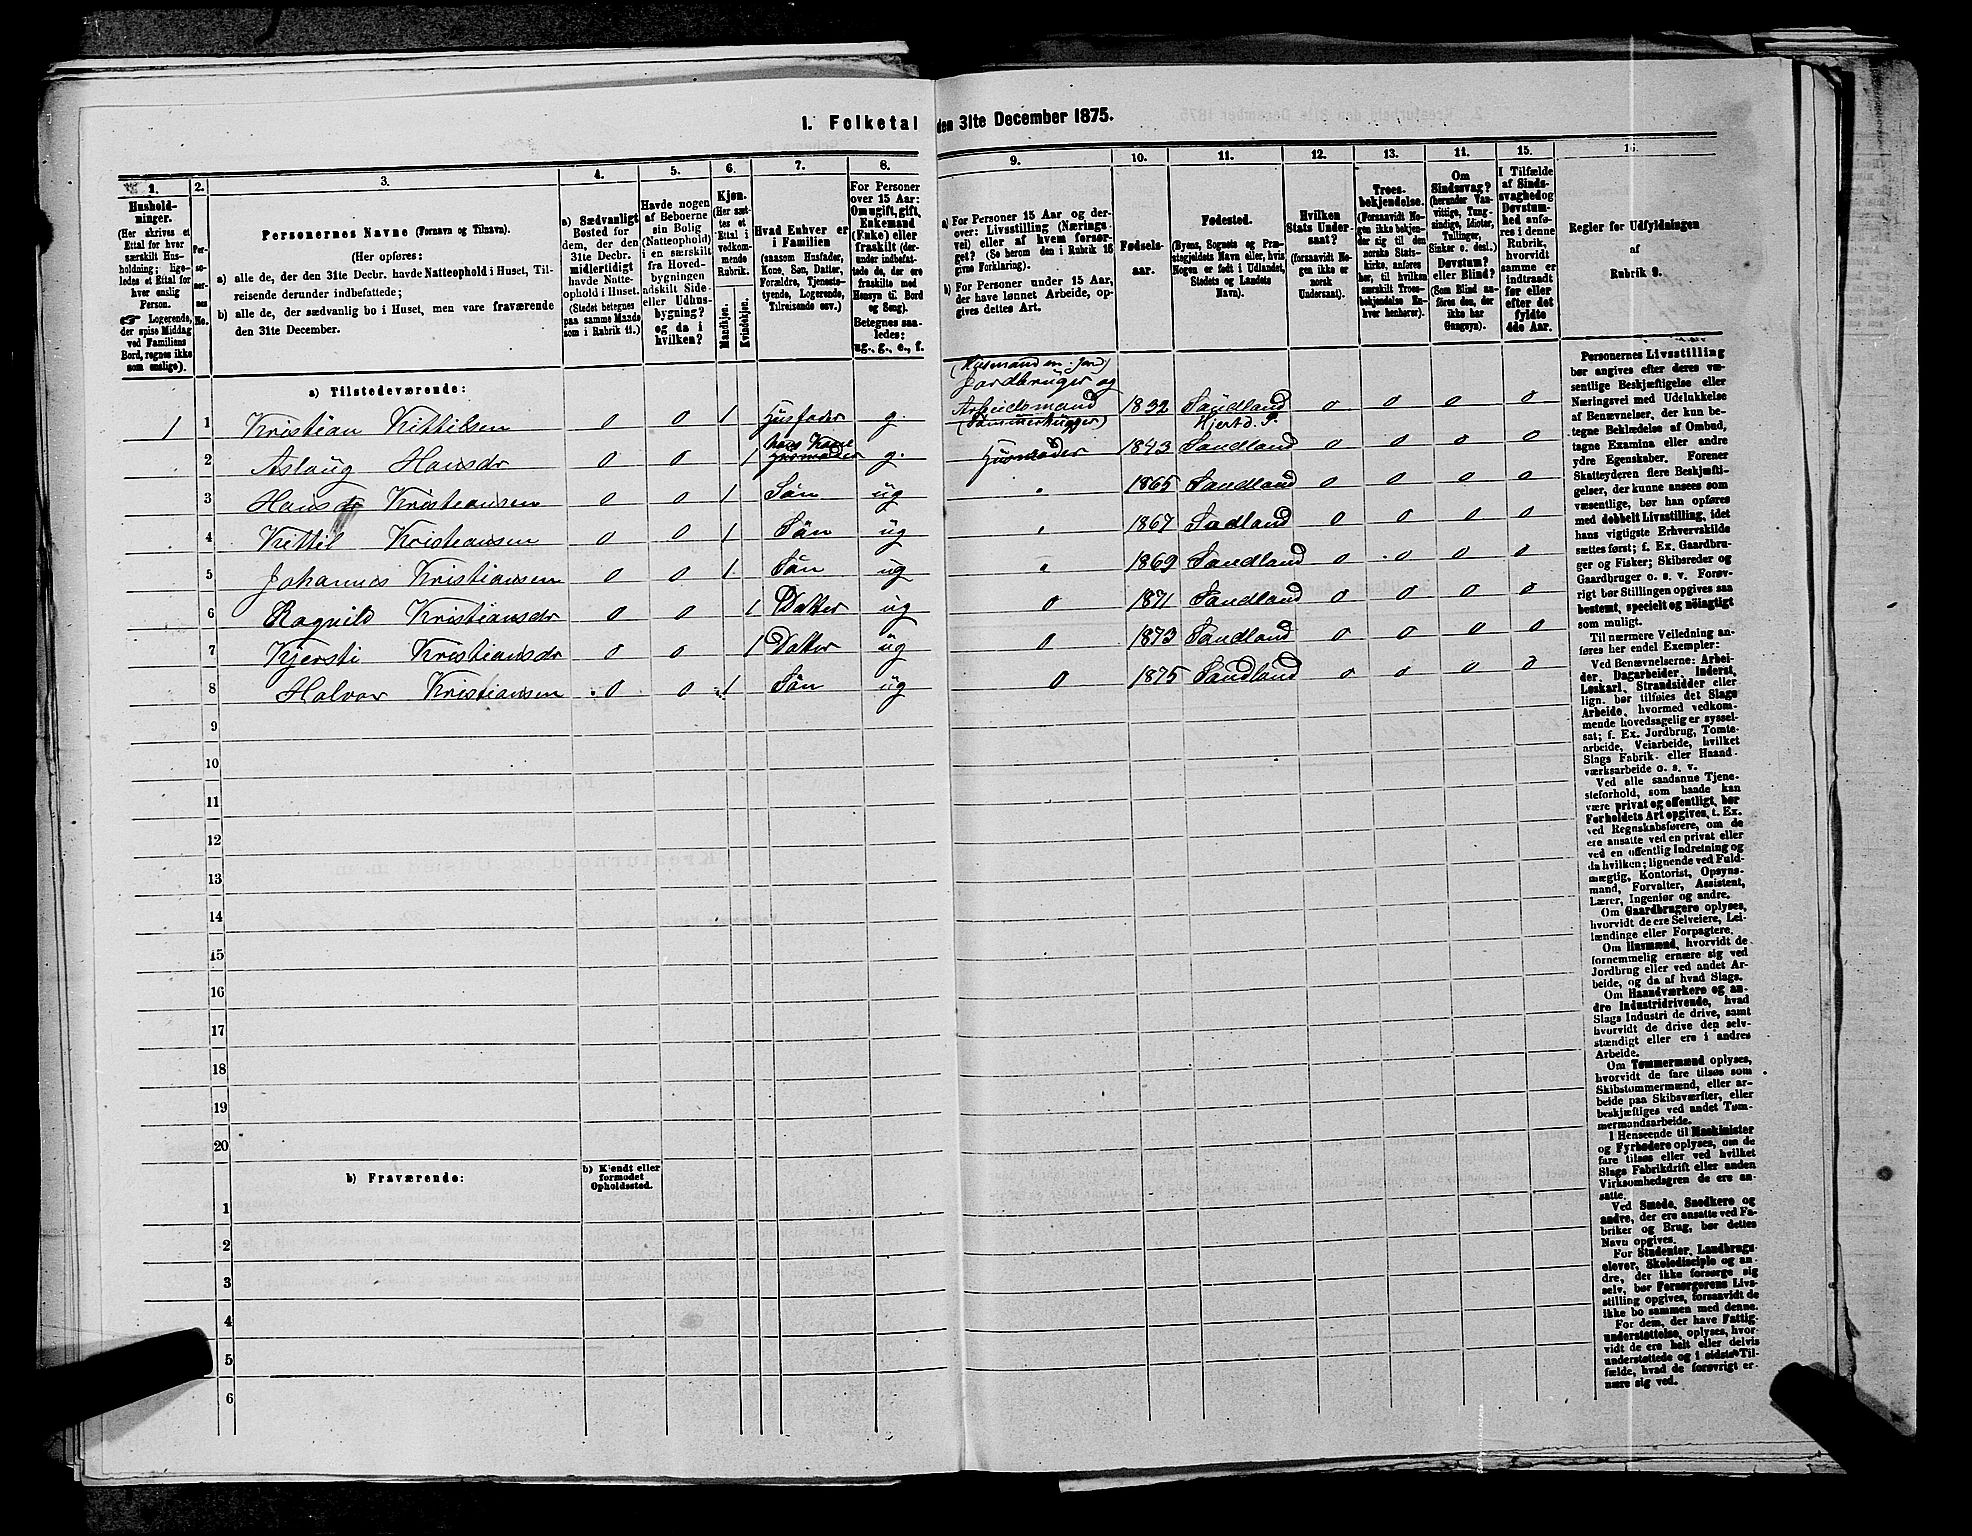 1. Folketal den 31te December 1875.
1. 2. 3. 4. 5. 6. 7. 8. 9. 10. 11. 12. 13. 14. 15. 16.
Hushold-
ninger.
(Her skrives et
Ettal for hver
særskilt Hus-
holdning; lige-
ledes et Ettal for
hver enslig
Person.
Logerende,
der spise Middag
ved Familiens
Bord, regnes ikke
som enslige).
Per-
so-
ner-
nes
No.
Personernes Navne (Fornavn og Tilnavn).
(Her opføres:
a) alle de, der den 31te Decbr. havde Natteophold i Huset, Til-
reisende derunder indbefattede;
b) alle de, der sædvanlig bo i Huset, men vare fraværende
den 31te December.
a) Sædvanligt
Bosted for
dem, der den
31te Decbr.
midlertidigt
havde Natte-
ophold i Huset.
(Stedet betegnes
paa samme Maade
som i Rubrik 11.)
Havde nogen
af Beboerne
sin Bolig
(Natteophold)
i en særskilt
fra Hoved-
bygningen
adskilt Side-
eller Udhus-
bygning?
og da i
hvilken?
Kjøn.
(Her sæt-
tes et
Ettal i
vedkom-
mende
Rubrik.
Mandkjøn.
Kvindekjøn.
Hvad Enhver er
i Familien
(saasom Husfader,
Kone, Søn, Datter,
Forældre, Tjeneste-
tyende, Logerende,
Tilreisende osv.)
For Personer
over 15 Aar:
Om ugift, gift,
Enkemand
(Enke) eller
fraskilt (der-
under indbefat-
tede de, der ere
fraskilte med
Hensyn til Bord
og Seng).
Betegnes saa-
ledes:
ug., g., e., f.
a) For Personer 15 Aar og der-
over: Livsstilling (Nærings-
vei) eller af hvem forsør-
get? (Se herom den i Rubrik 16
givne Forklaring).
b) For Personer under 15 Aar,
der have lønnet Arbeide, op-
gives dettes Art.
Fødsels-
aar.
Fødested.
(Byens, Sognets og Præ-
stegjeldets Navn eller, hvis
Nogen er født i Udlandet,
Stedets og Landets
Navn).
Hvilken
Stats Under-
saat?
(forsaavidt No-
gen ikke er
norsk
Undersaat).
Troes-
bekjendelse.
(Forsaavidt No-
gen ikke bekjen-
der sig til den
norske Stats-
kirke, anføres
her, til hvilken
særskilt Troes-
bekjendelse En-
hver henhører).
Om
Sindssvag?
(herunder Van-
vittige, Tung-
sindige, Idioter,
Tullinger,
Sinker o. desl.)
Døvstum?
eller Blind?
(Som Blind an-
føres den, der
ikke har
Gangsyn).
I Tilfælde
af Sinds-
svaghed og
Døvstum-
hed anfø-
res i denne
Rubrik,
hvorvidt
samme er
indtraadt
før eller
efter det
fyldte
4de Aar.
Regler for Udfyldningen
af
Rubrik 9.
a) Tilstedeværende:
(Husmand m. Jord)
Jordbruger og
1 1 Kristian Kittilsen 0 0 1 Husfader g. Arbeidsmand 1832 Saudland 0 0 0 0
(Tømmerhugger) Hjertd. P.
hans Kone
2 Aslaug Hansdr 0 0 1 Husmoder g. Husmoder 1843 Saudland 0 0 0 0
3 Hans Kristiansen 0 0 1 Søn ug " 1865 Saudland 0 0 0 0
4 Kittil Kristiansen 0 0 1 Søn ug " 1867 Sadland 0 0 0 0
5 Johannes Kristiansen 0 0 1 Søn ug " 1869 Saudland 0 0 0 0
6 Ragnild Kristiansdr 0 0 1 Datter ug 0 1871 Saudland 0 0 0 0
7 Kjersti Kristiansdr 0 0 1 Datter ug 0 1873 Saudland 0 0 0 0
8 Halvor Kristiansen 0 0 1 Søn ug 0 1875 Saudland 0 0 0 0
9
10
11
12
13
14
15
16
17
18
19
20
b) Fraværende:
b) Kjendt eller
formodet
Opholdssted.
1
2
3
4
5
6
Personernes Livsstilling
bør angives efter deres væ-
sentlige Beskjæftigelse eller
Næringsvei med Udelukkelse
af Benævnelser, der kun be-
tegne Beklædelse af Ombud,
tagne Examina eller andre
ydre Egenskaber. Forener
Skatteyderen flere Beskjæfti-
gelser, der kunne ansees som
væsentlige, bør han opføres
med dobbelt Livsstilling, idet
hans vigtigste Erhvervskilde
sættes først; f. Ex. Gaardbru-
ger og Fisker; Skibsreder og
Gaardbruger o. s. v. Forøv-
rigt bør Stillingen opgives saa
bestemt, specielt og nøiagtigt
som muligt.
Til nærmere Veiledning an-
føres her endel Exempler:
Ved Benævnelserne: Arbei-
der, Dagarbeider, Inderst,
Løskarl, Strandsidder eller
lign. bør tilføies det Slags
Arbeide, hvormed vedkom-
mende hovedsagelig er syssel-
sat; f. Ex. Jordbrug, Tomte-
arbeide, Veiarbeide, hvilket
Slags Fabrik- eller Haand-
værksarbeide o. s. v.
Ved alle saadanne Tjene-
steforhold, som baade kan
være privat og offentligt, bør
Forholdets Art opgives, t. Ex.
ved Regnskabsførere, om de
ere ansatte ved en privat eller
ved en offentlig Indretning og
da hvilken; lignende ved Fuld-
mægtig, Kontorist, Opsyns-
mand, Forvalter, Assistent,
Lærer, Ingeniør og andre.
Om Gaardbrugere oplyses,
hvorvidt de ere Selveiere, Lei-
lændinge eller Forpagtere.
Om Husmænd, hvorvidt de
fornemmelig ernære sig ved
Jordbrug eller ved andet Ar-
beide, og da af hvad Slags.
Om Haandværkere og an-
dre Industridrivende, hvad
Slags Industri de drive, samt
hvorvidt de drive den selv-
stændigt eller ere i andres
Arbeide.
Om Tømmermænd oplyses,
hvorvidt de fare tilsøs som
Skibstømmermænd, eller ar-
beide paa Skibsværfter, eller
beskjæftiges ved andet Tøm-
mermandsarbeide.
I Henseende til Maskinister
og Fyrbødere oplyses, om de
fare tilsøs eller ved hvilket
Slags Fabrikdrift eller anden
Virksomhedsgren de ere an-
satte.
Ved Smede, Snedkere og
andre, der ere ansatte ved Fa-
briker og Brug, bør dettes
Navn opgives.
For Studenter, Landbrugs-
elever, Skoledisciple og an-
dre, der ikke forsørge sig
selv, bør Forsørgerens Livs-
stilling opgives, forsaavidt de
ikke bo sammen med denne.
For dem, der have Fattig-
understøttelse, oplyses, hvor-
vidt de ere helt eller delvis
understøttede og i sidste Til-
fælde, hvad de forøvrigt er-
nære sig ved.